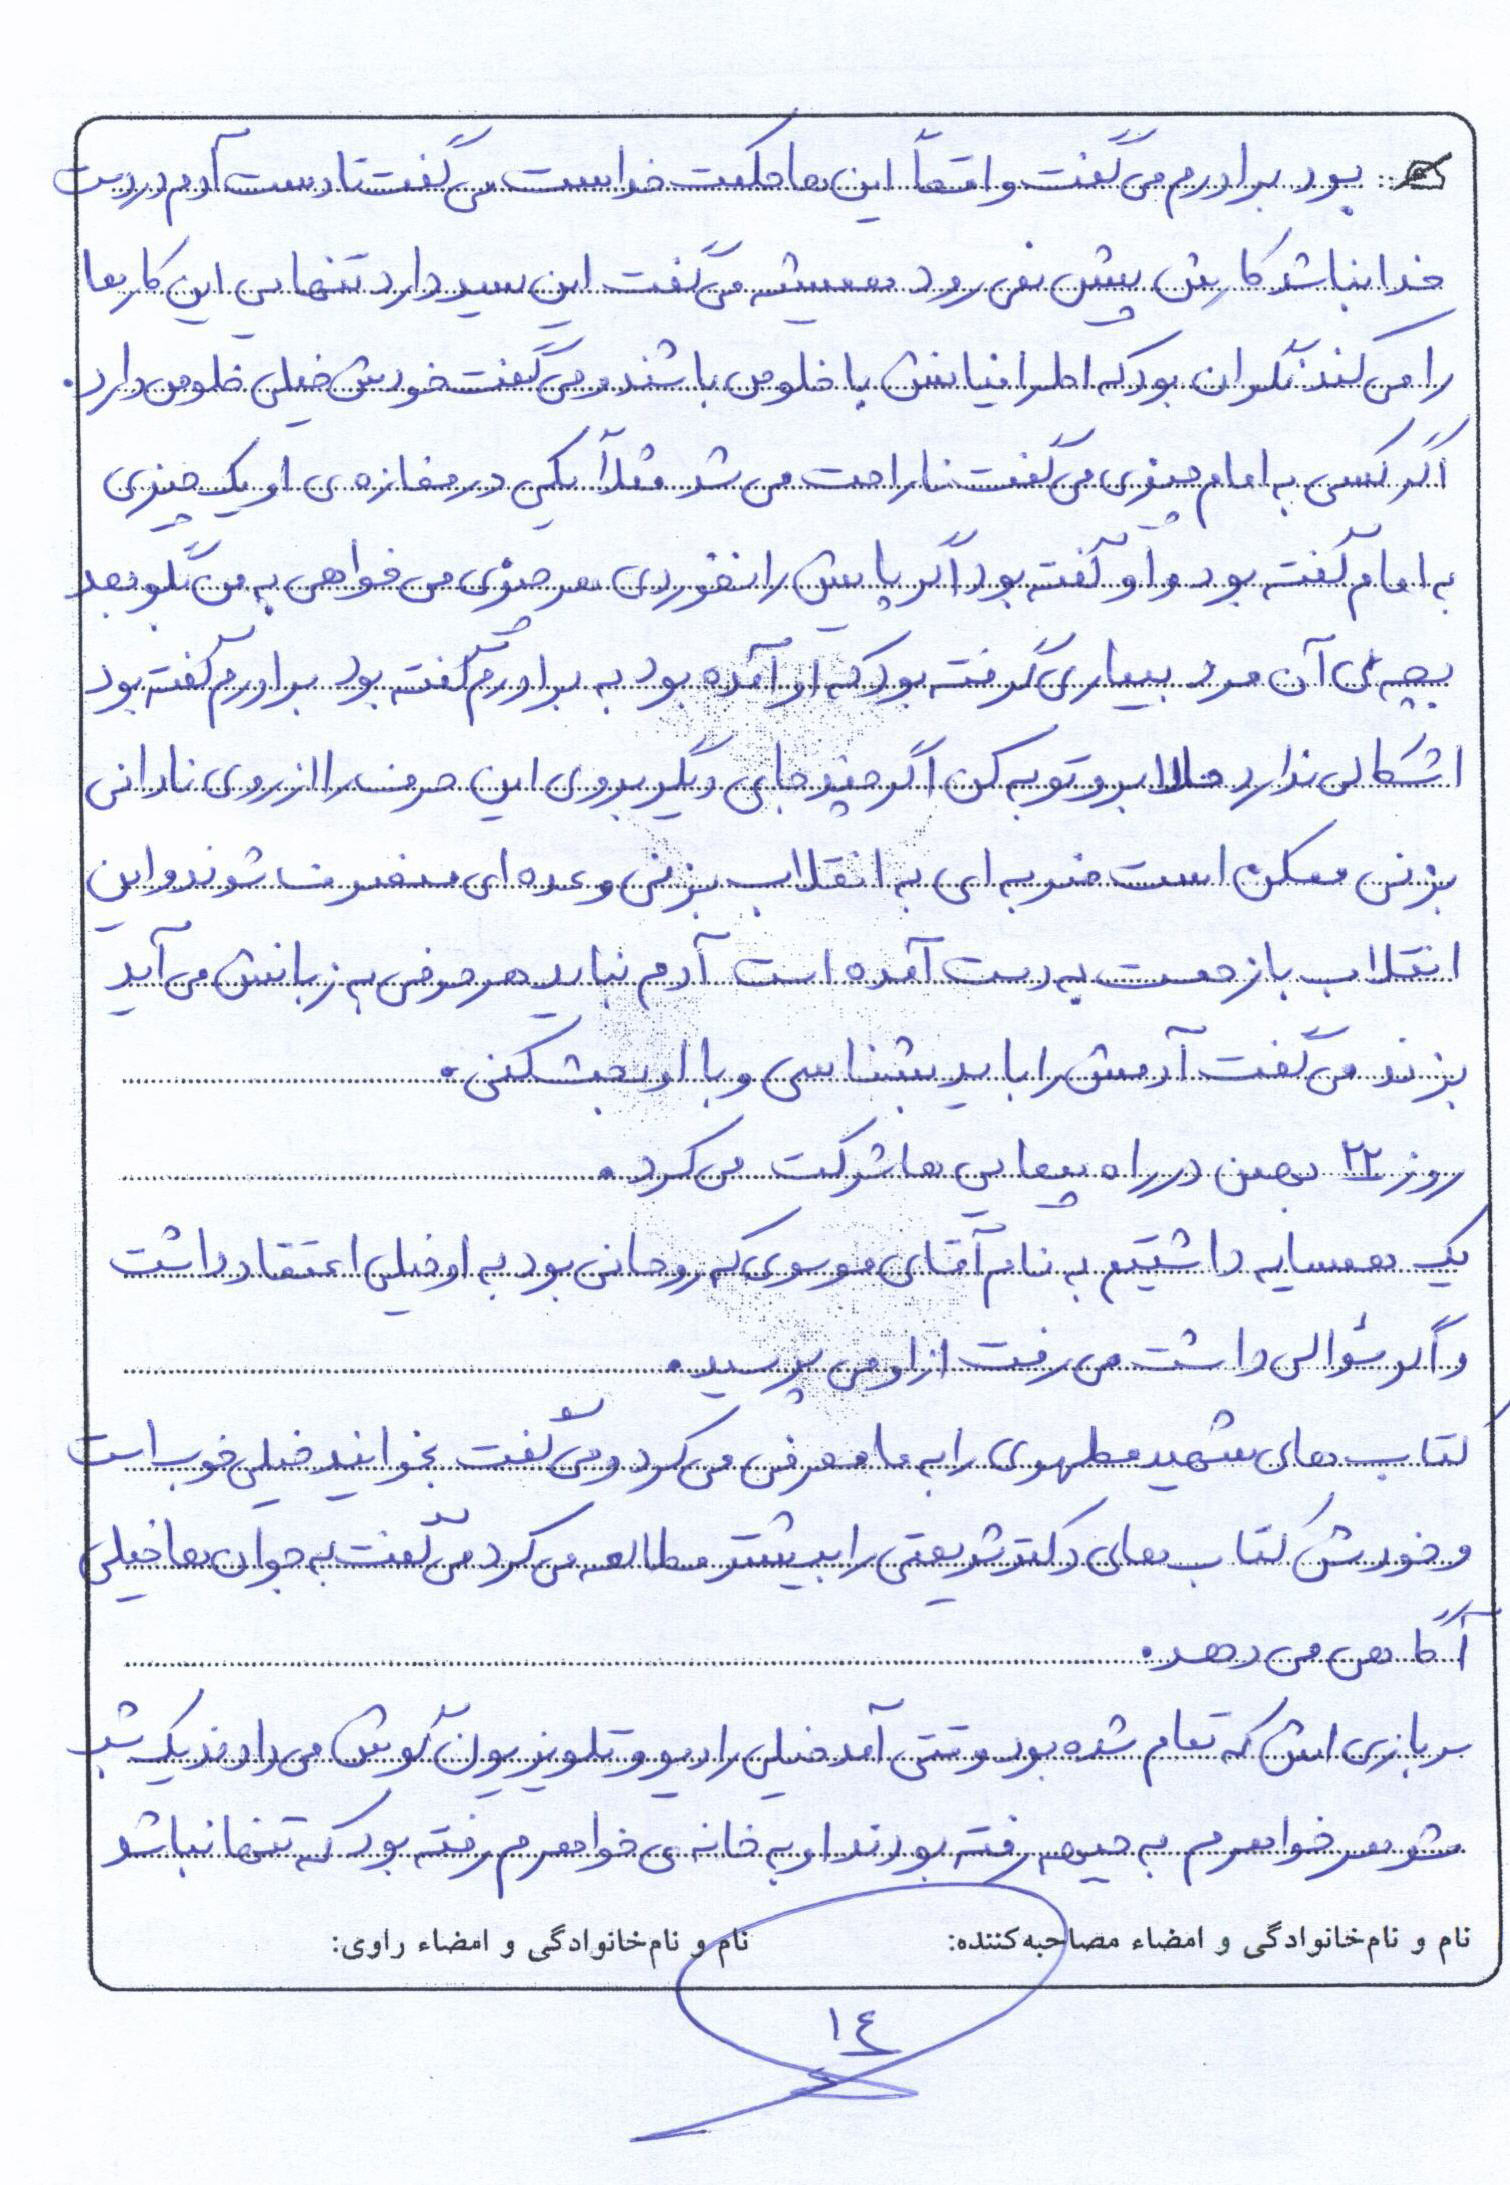 بود برادرم می گفت واقعاً این ها حکمت خداست می گفت تا دست آدم در دست
خدا نباشد کارش پیش نمی رود همیشه می گفت این سید دارد تنهایی این کارها
را می کند نگران بود که اطرافیانش با خلوص باشند و می گفت خودش خیلی خلوص دارد.
اگر کسی به امام چیزی می گفت ناراحت می شد مثلاً یکی در مغازه ی او یک چیزی
به امام گفته بود و او گفته بود اگر پایش را نخوردی هر چیزی می خواهی به من بگو بعد
بچه ی آن مرد بیماری گرفته بود که او آمده بود به برادرم گفته بود برادرم گفته بود
اشکالی ندارد حالا برو توبه کن اگر چند جای دیگر بروی این حرف را از روی نادانی
بزنی ممکن است ضربه ای به انقلاب بزنی و عده ای منحرف شوند و این
انقلاب با زحمت به دست آمده است آدم نباید هر حرفی به زبانش می آید
بزند می گفت آدمش را باید بشناسی و با او بحث کنی.
روز ۲۲ بهمن در راه پیمایی ها شرکت می کرد.
یک همسایه داشتیم به نام آقای موسوی که روحانی بود به او خیلی اعتقاد داشت
و اگر سؤالی داشت می رفت از او می پرسید.
کتاب های شهید مطهری را به ما معرفی می کرد و می گفت بخوانید خیلی خوب است
و خودش کتاب های دکتر شریعتی را بیشتر مطالعه می کرد می گفت به جوان ها خیلی
آگاهی می دهد.
سربازی اش که تمام شده بود وقتی آمد خیلی رادیو و تلویزیون گوش می دادند یک شب
شوهر خواهرم به جبهه رفته بودند او به خانه ی خواهرم رفته بود که تنها نباشد
نام و نام‌خانوادگی و امضاء مصاحبه‌کننده: نام و نام‌خانوادگی و امضاء راوی:
۱٤